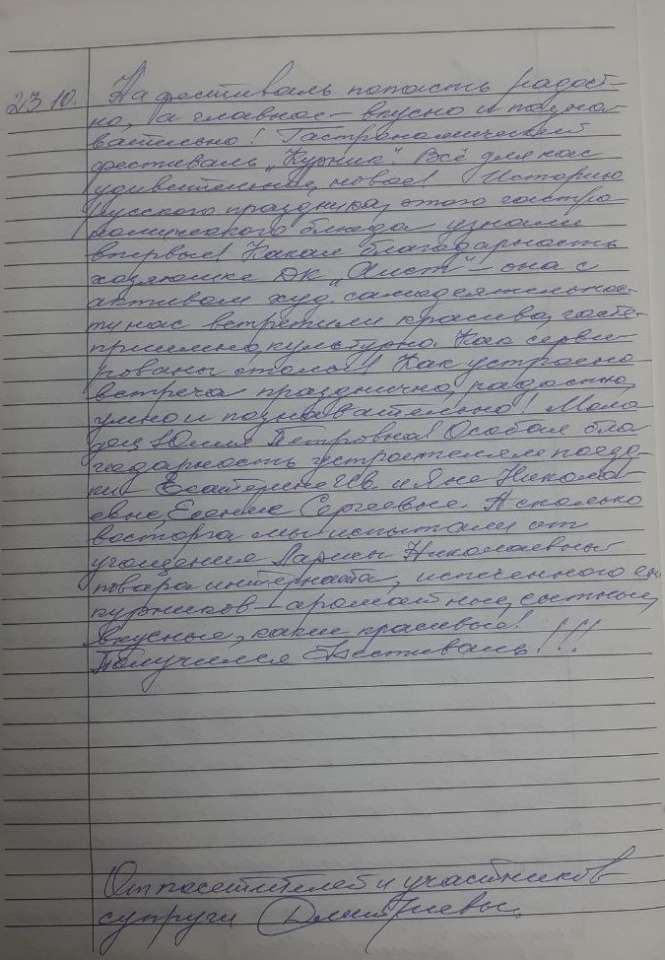 23 10. На фестиваль попасть радост-
но, а главное – вкусно и позна-
вательно! Гастрономический
фестиваль „Курник". Всё для нас
удивительное, новое! Историю
русского праздника, этого гастро
номического блюда узнали
впервые! Какая благодарность
хозяюшке ДК „Аист" – она с
активом худ. самодеятельнос-
ти нас встретили красиво, госте-
приимно, культурно. Как серви-
рованы столы! Как устроена
встреча празднично, радостно,
умно и познавательно! Моло
дец Юлия Петровна! Особая бла
годарность устроителям поезд-
ки Екатерине и Яне Никола
евне, Есении Сергеевне. А сколько
восторга мы испытали от
угощения Ларисы Николаевны
повара интерната, испеченного ею
курников – ароматные, сытные,
вкусные, какие красивые!
Получился Фестиваль!!!
От посетителей и участников
супруги Дмитриевы.